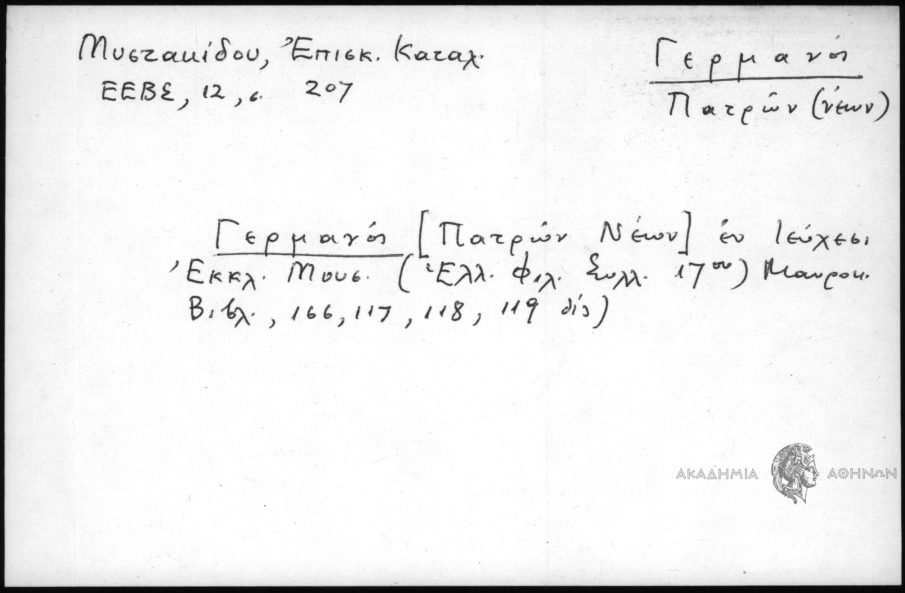 Μυστακίδου, Ἐπισκ. Καταλ.
ΕΕΒΣ, 12, σ. 207
Γερμανός
Πατρῶν (νέων)
Γερμανός [Πατρῶν Νέων] ἐν τεύχεσι
Ἐκκλ. Μους. (Ἑλλ. Φιλ. Συλλ. 17ου) Μαυροκ.
Βιβλ., 166, 117, 118, 119 δίς)
ΑΚΑΔΗΜΙΑ ΑΘΗΝΩΝ